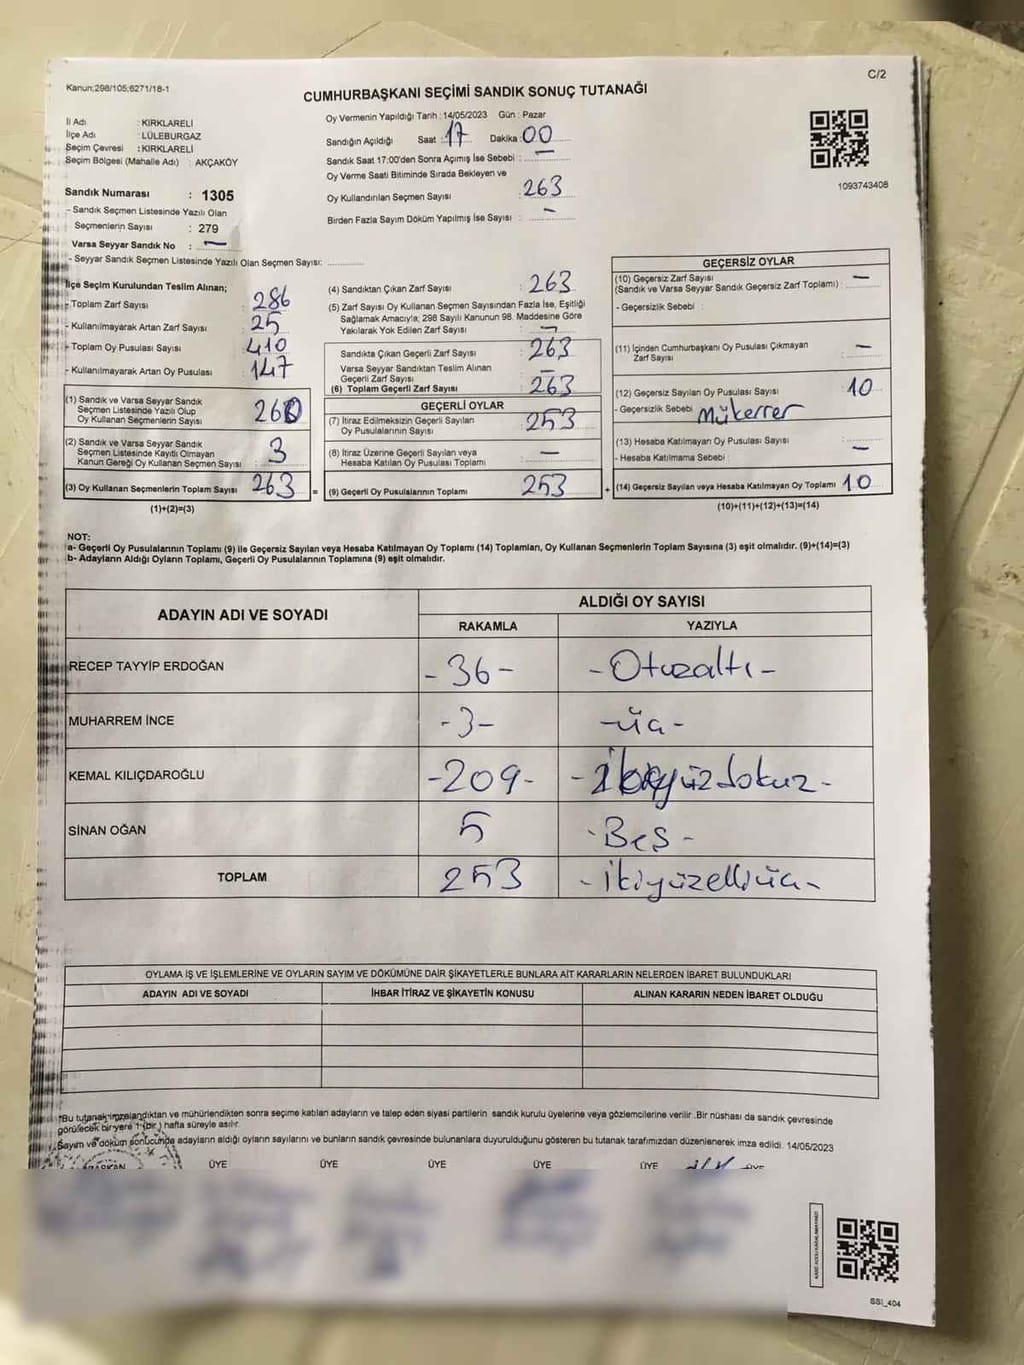 Kanun;298/105;6271/18-1
C/2
CUMHURBAŞKANI SEÇİMİ SANDIK SONUÇ TUTANAĞI
İl Adı : KIRKLARELİ
İlçe Adı : LÜLEBURGAZ
Seçim Çevresi : KIRKLARELİ
Seçim Bölgesi (Mahalle Adı) : AKÇAKÖY
Sandık Numarası : 1305
- Sandık Seçmen Listesinde Yazılı Olan
Seçmenlerin Sayısı : 279
Varsa Seyyar Sandık No : —
- Seyyar Sandık Seçmen Listesinde Yazılı Olan Seçmen Sayısı:
Oy Vermenin Yapıldığı Tarih : 14/05/2023 Gün : Pazar
Sandığın Açıldığı Saat : 17 Dakika : 00
Sandık Saat 17:00'den Sonra Açımış İse Sebebi : —
Oy Verme Saati Bitiminde Sırada Bekleyen ve
Oy Kullandırılan Seçmen Sayısı : 263
Birden Fazla Sayım Döküm Yapılmış İse Sayısı : —
1093743408
İlçe Seçim Kurulundan Teslim Alınan;
- Toplam Zarf Sayısı : 286
- Kullanılmayarak Artan Zarf Sayısı : 25
- Toplam Oy Pusulası Sayısı : 410
- Kullanılmayarak Artan Oy Pusulası : 147
(1) Sandık ve Varsa Seyyar Sandık
Seçmen Listesinde Yazılı Olup
Oy Kullanan Seçmenlerin Sayısı : 260
(2) Sandık ve Varsa Seyyar Sandık
Seçmen Listesinde Kayıtlı Olmayan
Kanun Gereği Oy Kullanan Seçmen Sayısı : 3
(3) Oy Kullanan Seçmenlerin Toplam Sayısı : 263
(1)+(2)=(3)
(4) Sandıktan Çıkan Zarf Sayısı : 263
(5) Zarf Sayısı Oy Kullanan Seçmen Sayısından Fazla İse, Eşitliği
Sağlamak Amacıyla; 298 Sayılı Kanunun 98. Maddesine Göre
Yakılarak Yok Edilen Zarf Sayısı : —
Sandıkta Çıkan Geçerli Zarf Sayısı : 263
Varsa Seyyar Sandıktan Teslim Alınan
Geçerli Zarf Sayısı : —
(6) Toplam Geçerli Zarf Sayısı : 263
GEÇERLİ OYLAR
(7) İtiraz Edilmeksizin Geçerli Sayılan
Oy Pusulalarının Sayısı : 253
(8) İtiraz Üzerine Geçerli Sayılan veya
Hesaba Katılan Oy Pusulası Toplamı : —
= (9) Geçerli Oy Pusulalarının Toplamı : 253 +
GEÇERSİZ OYLAR
(10) Geçersiz Zarf Sayısı
(Sandık ve Varsa Seyyar Sandık Geçersiz Zarf Toplamı) : —
- Geçersizlik Sebebi :
(11) İçinden Cumhurbaşkanı Oy Pusulası Çıkmayan
Zarf Sayısı : —
(12) Geçersiz Sayılan Oy Pusulası Sayısı : 10
- Geçersizlik Sebebi : Mükerrer
(13) Hesaba Katılmayan Oy Pusulası Sayısı : —
- Hesaba Katılmama Sebebi :
(14) Geçersiz Sayılan veya Hesaba Katılmayan Oy Toplamı : 10
(10)+(11)+(12)+(13)=(14)
NOT:
a- Geçerli Oy Pusulalarının Toplamı (9) ile Geçersiz Sayılan veya Hesaba Katılmayan Oy Toplamı (14) Toplamları, Oy Kullanan Seçmenlerin Toplam Sayısına (3) eşit olmalıdır. (9)+(14)=(3)
b- Adayların Aldığı Oyların Toplamı, Geçerli Oy Pusulalarının Toplamına (9) eşit olmalıdır.
ADAYIN ADI VE SOYADI ALDIĞI OY SAYISI
RAKAMLA YAZIYLA
RECEP TAYYİP ERDOĞAN -36- -Otuzaltı-
MUHARREM İNCE -3- -üç-
KEMAL KILIÇDAROĞLU -209- -İkiyüzdokuz-
SİNAN OĞAN 5 -Beş-
TOPLAM 253 -İkiyüzelliüç-
OYLAMA İŞ VE İŞLEMLERİNE VE OYLARIN SAYIM VE DÖKÜMÜNE DAİR ŞİKAYETLERLE BUNLARA AİT KARARLARIN NELERDEN İBARET BULUNDUKLARI
ADAYIN ADI VE SOYADI İHBAR İTİRAZ VE ŞİKAYETİN KONUSU ALINAN KARARIN NEDEN İBARET OLDUĞU
*Bu tutanak imzalandıktan ve mühürlendikten sonra seçime katılan adayların ve talep eden siyasi partilerin sandık kurulu üyelerine veya gözlemcilerine verilir. Bir nüshası da sandık çevresinde
görülecek bir yere 1 (bir) hafta süreyle asılır.
Sayım ve döküm sonucunda adayların aldığı oyların sayılarını ve bunların sandık çevresinde bulunanlara duyurulduğunu gösteren bu tutanak tarafımızdan düzenlenerek imza edildi. 14/05/2023
BAŞKAN ÜYE ÜYE ÜYE ÜYE ÜYE ÜYE
SSİ_404